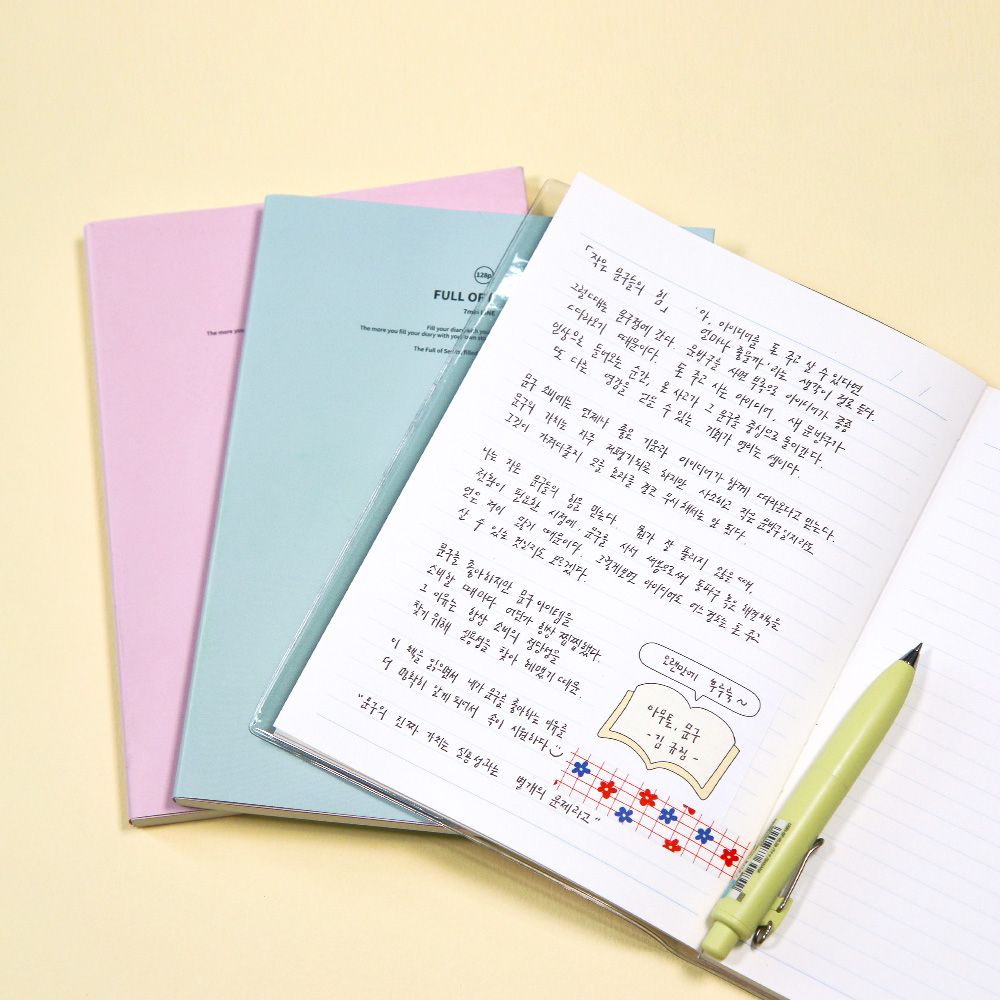 128p
FULL OF
7mm LINE
Fill your diary with yo
The more you fill your diary with your own sto
The Full of Series, filled
The more you
「작은 문구들의 힘」
'아, 아이디어를 돈 주고 살 수 있다면
얼마나 좋을까' 라는 생각이 절로 든다.
그럴 때는 문구점에 간다. 문방구를 사면 부록으로 아이디어가 종종
따라오기 때문이다. 돈 주고 사는 아이디어. 새 문방구가
일상으로 들어오는 순간, 온 사고가 그 문구를 중심으로 돌아간다.
또 다른 영감을 얻을 수 있는 기회가 열리는 셈이다.
문구 소비에는 언제나 좋은 기운과 아이디어가 함께 따라온다고 믿는다.
문구의 가치는 자주 저평가되곤 하지만 사소하고 작은 문방구일지라도
그것이 가져다줄지 모를 효과를 결코 무시해서는 안 된다.
나는 작은 문구들의 힘을 믿는다. 뭔가 잘 풀리지 않을 때,
전환이 필요한 시점에, 문구를 사서 씀으로써 돌파구 혹은 해결책을
얻은 적이 많기 때문이다. 그렇게보면 아이디어도 어느 정도는 돈 주고
살 수 있는 것일지도 모르겠다.
문구를 좋아하지만 문구 아이템을
소비할 때마다 어딘가 항상 찜찜했다.
그 이유는 항상 소비의 정당성을
찾기 위해 실용성을 찾아 헤맸기 때문.
이 책을 읽으면서 내가 문구를 좋아하는 이유를
더 명확히 알게 되어서 속이 시원하다
"문구의 진짜 가치는 실용성과는 별개의 문제라고"
오랜만에 독서록~
아무튼, 문구
- 김 규림 -